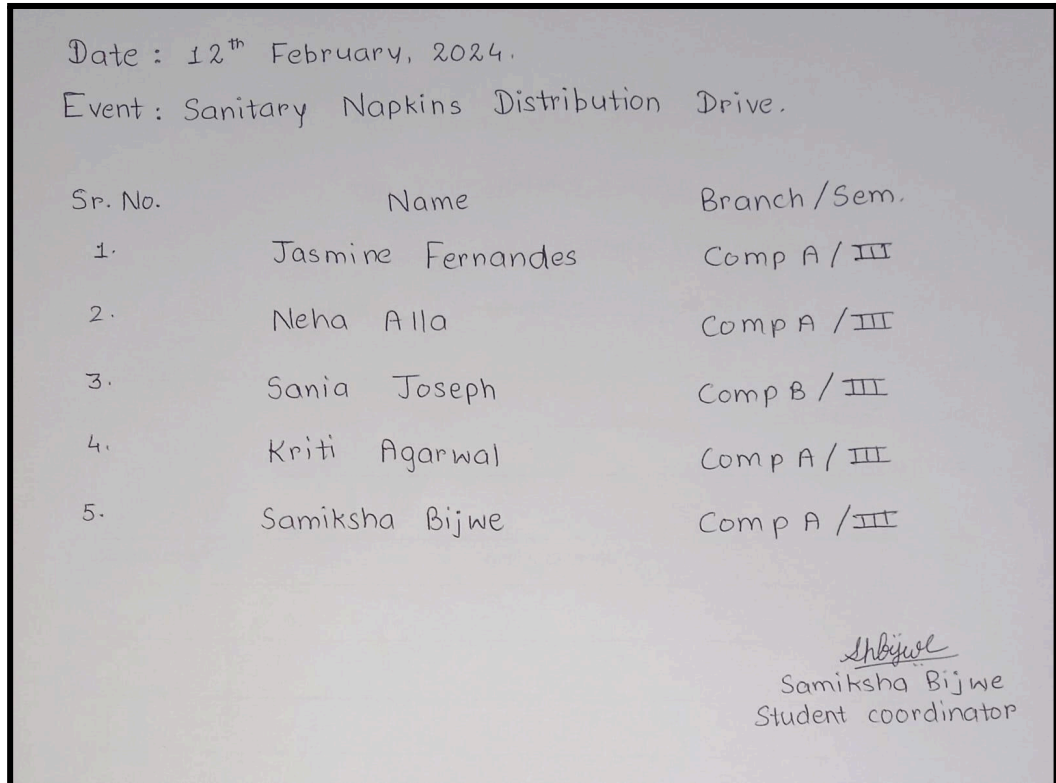 Date : 12th February, 2024.
Event : Sanitary Napkins Distribution Drive.
Sr. No. Name Branch / Sem.
1. Jasmine Fernandes Comp A / III
2. Neha Alla Comp A / III
3. Sania Joseph Comp B / III
4. Kriti Agarwal Comp A / III
5. Samiksha Bijwe Comp A / III
ShBijwe
Samiksha Bijwe
Student coordinator